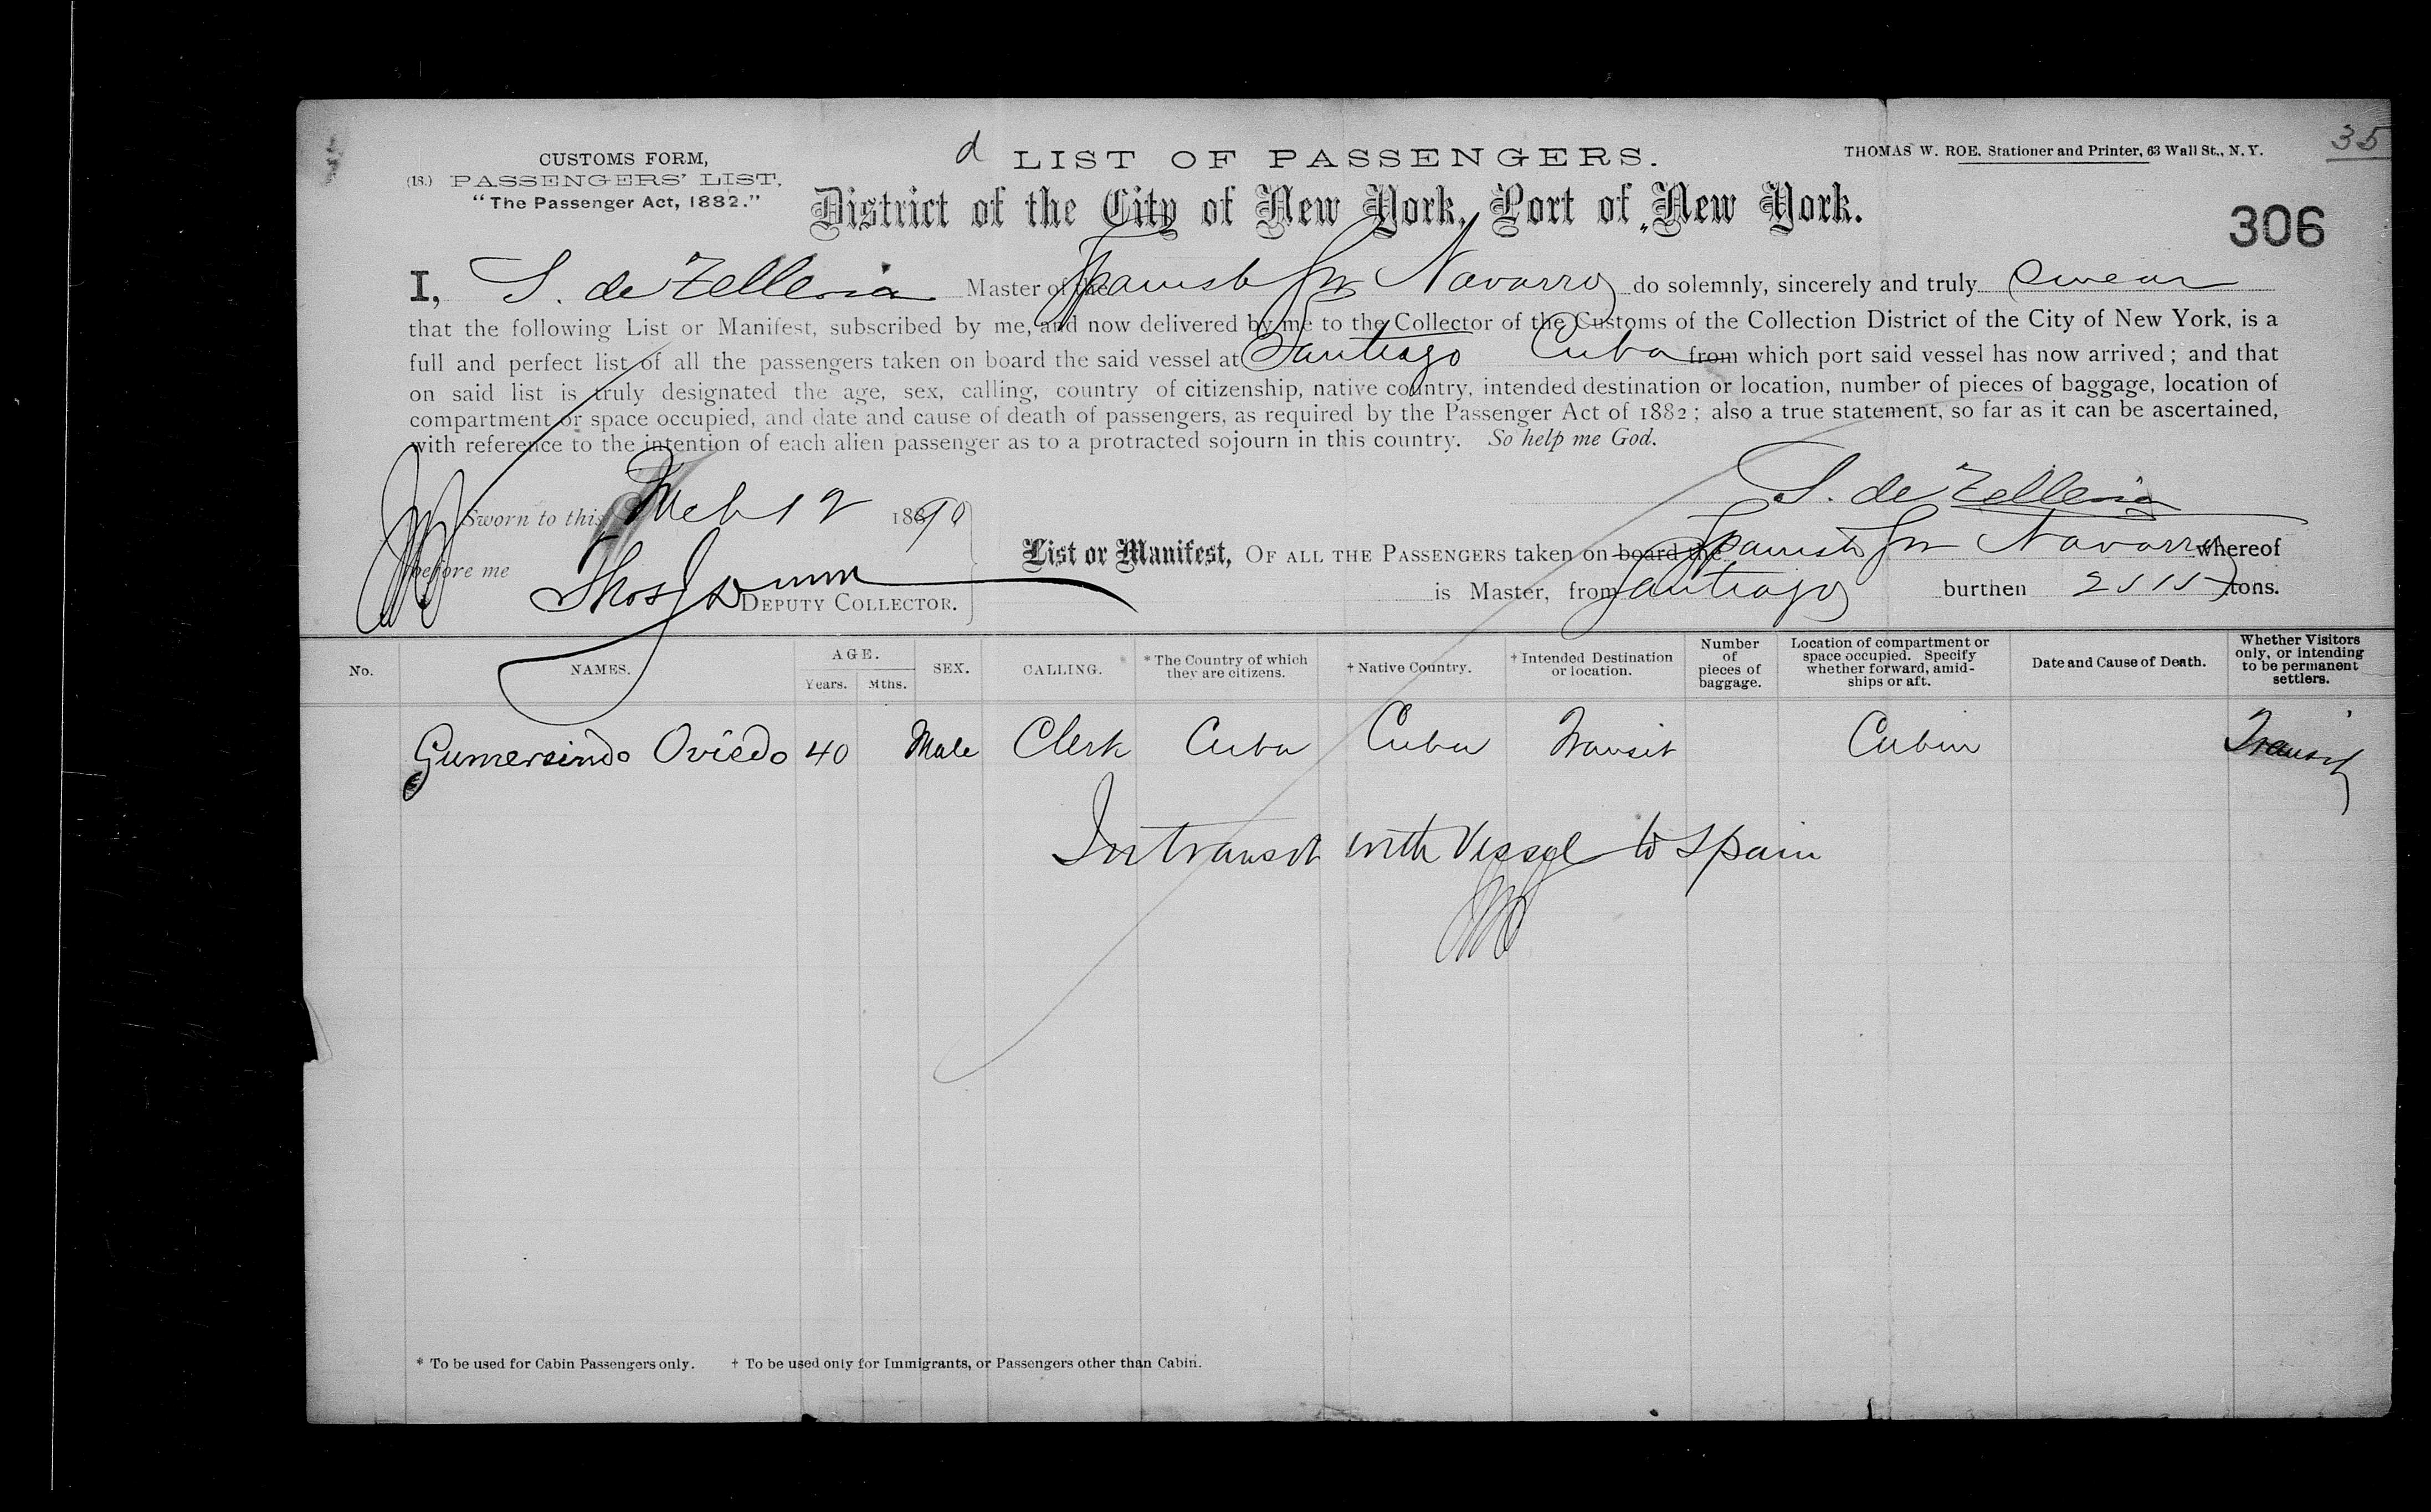 35
CUSTOMS FORM,
(18.) PASSENGERS' LIST,
"The Passenger Act, 1882."
d LIST OF PASSENGERS.
THOMAS W. ROE, Stationer and Printer, 63 Wall St., N. Y.
District of the City of New York, Port of New York.
306
I, S. de Zelleria Master of the Spanish Navarro do solemnly, sincerely and truly swear
that the following List or Manifest, subscribed by me, and now delivered by me to the Collector of the Customs of the Collection District of the City of New York, is a
full and perfect list of all the passengers taken on board the said vessel at Santiago Cuba from which port said vessel has now arrived; and that
on said list is truly designated the age, sex, calling, country of citizenship, native country, intended destination or location, number of pieces of baggage, location of
compartment or space occupied, and date and cause of death of passengers, as required by the Passenger Act of 1882; also a true statement, so far as it can be ascertained,
with reference to the intention of each alien passenger as to a protracted sojourn in this country. So help me God.
S. de Zelleria
Sworn to this Mch 12 1890
before me Thos J Dunn
DEPUTY COLLECTOR.
List or Manifest, OF ALL THE PASSENGERS taken on board the Spanish Navarro whereof
is Master, from Santiago burthen 2515 tons.
No. NAMES. AGE. Years. Mths. SEX. CALLING. * The Country of which they are citizens. † Native Country. † Intended Destination or location. Number of pieces of baggage. Location of compartment or space occupied. Specify whether forward, amidships or aft. Date and Cause of Death. Whether Visitors only, or intending to be permanent settlers.
Gumersindo Oviedo 40 Male Clerk Cuba Cuba Transit Cabin Transit
In transit with Vessel to Spain
* To be used for Cabin Passengers only. † To be used only for Immigrants, or Passengers other than Cabin.